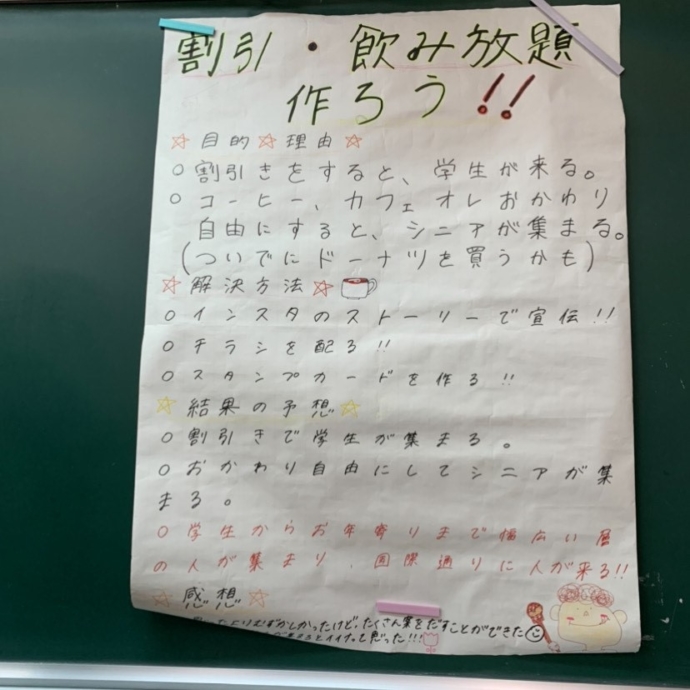 割引・飲み放題
作ろう!!
☆目的☆理由☆
○割引きをすると、学生が来る。
○コーヒー、カフェオレおかわり
自由にすると、シニアが集まる。
(ついでにドーナツを買うかも)
☆解決方法☆
○インスタのストーリーで宣伝!!
○チラシを配る!!
○スタンプカードを作る!!
☆結果の予想☆
○割引きで学生が集まる。
○おかわり自由にしてシニアが集
まる。
○学生からお年寄りまで幅広い層
の人が集まり、国際通りに人が来る!!
☆感想☆
むずかしかったけど、たくさん案をだすことができた
思った!!!